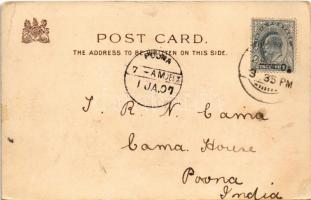 POST CARD.
THE ADDRESS TO BE WRITTEN ON THIS SIDE.
POONA
7-AM
1 JA.07
35 PM
J. R. N. Cama
Cama House
Poona
India